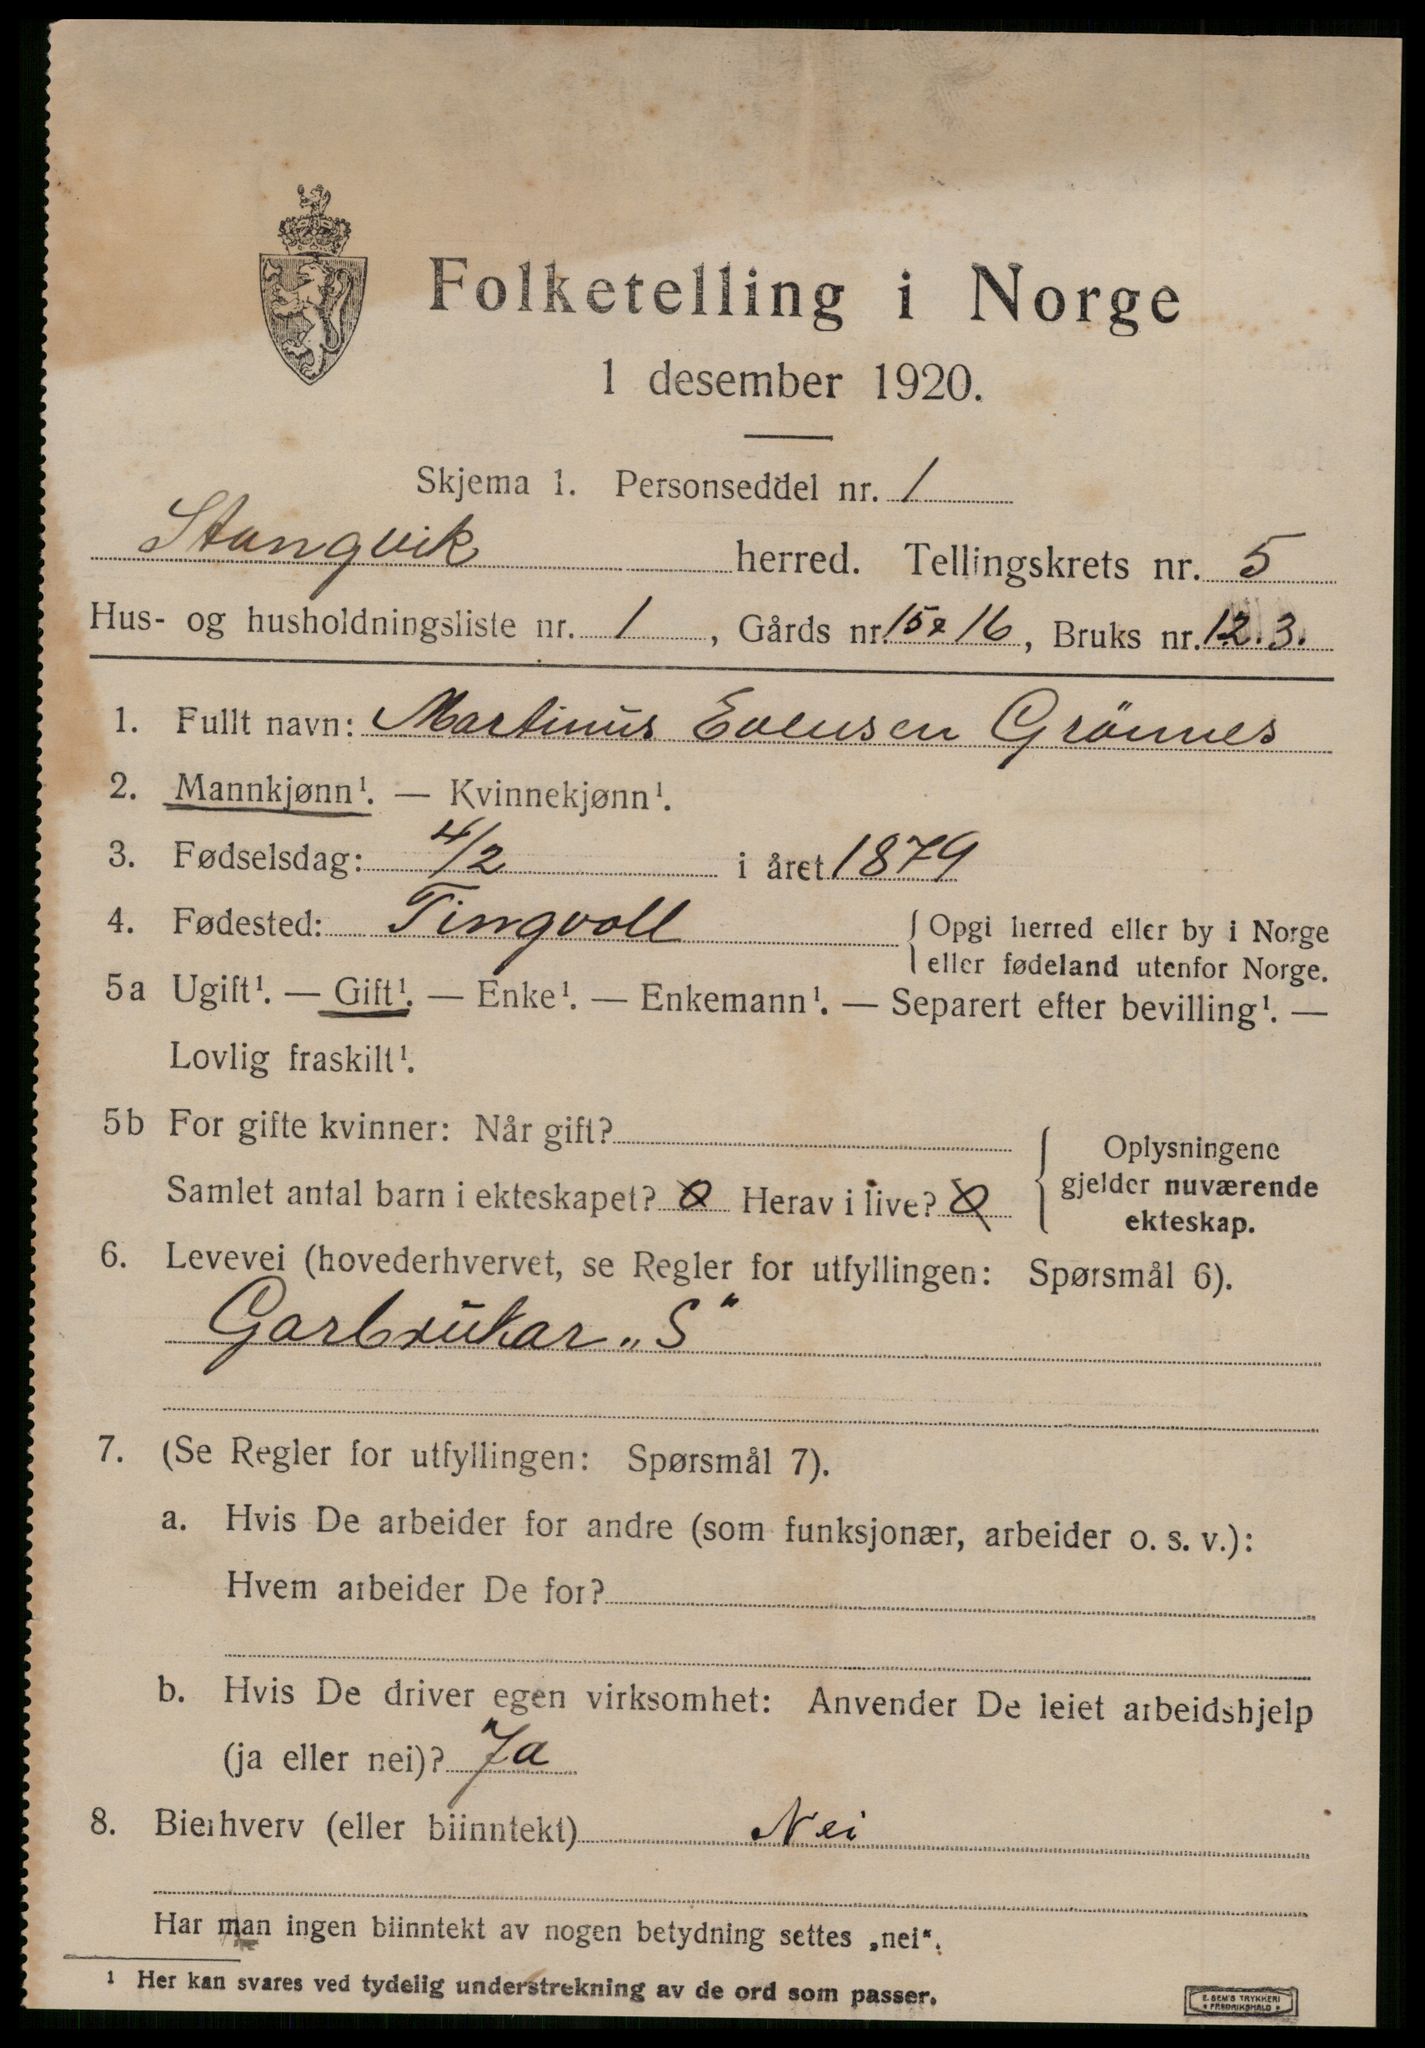 Folketelling i Norge
1 desember 1920.
Skjema 1. Personseddel nr. 1
Stangvik herred. Tellingskrets nr. 5
Hus- og husholdningsliste nr. 1, Gårds nr. 15 & 16, Bruks nr. 12.3.
1. Fullt navn: Martinus Evensen Grönnes
2. Mannkjønn¹. — Kvinnekjønn¹.
3. Fødselsdag: 4/2 i året 1879
4. Fødested: Tingvoll { Opgi herred eller by i Norge
eller fødeland utenfor Norge.
5a Ugift¹. — Gift¹. — Enke¹. — Enkemann¹. — Separert efter bevilling¹. —
Lovlig fraskilt¹.
5b For gifte kvinner: Når gift?
Samlet antal barn i ekteskapet? Herav i live?
{ Oplysningene
gjelder nuværende
ekteskap.
6. Levevei (hovederhvervet, se Regler for utfyllingen: Spørsmål 6).
Garbrukar „S"
7. (Se Regler for utfyllingen: Spørsmål 7).
a. Hvis De arbeider for andre (som funksjonær, arbeider o. s. v.):
Hvem arbeider De for?
b. Hvis De driver egen virksomhet: Anvender De leiet arbeidshjelp
(ja eller nei)? Ja
8. Bierhverv (eller biinntekt) Nei
Har man ingen biinntekt av nogen betydning settes „nei".
¹ Her kan svares ved tydelig understrekning av de ord som passer.
E. SEM'S TRYKKERI
* FREDRIKSHALD *